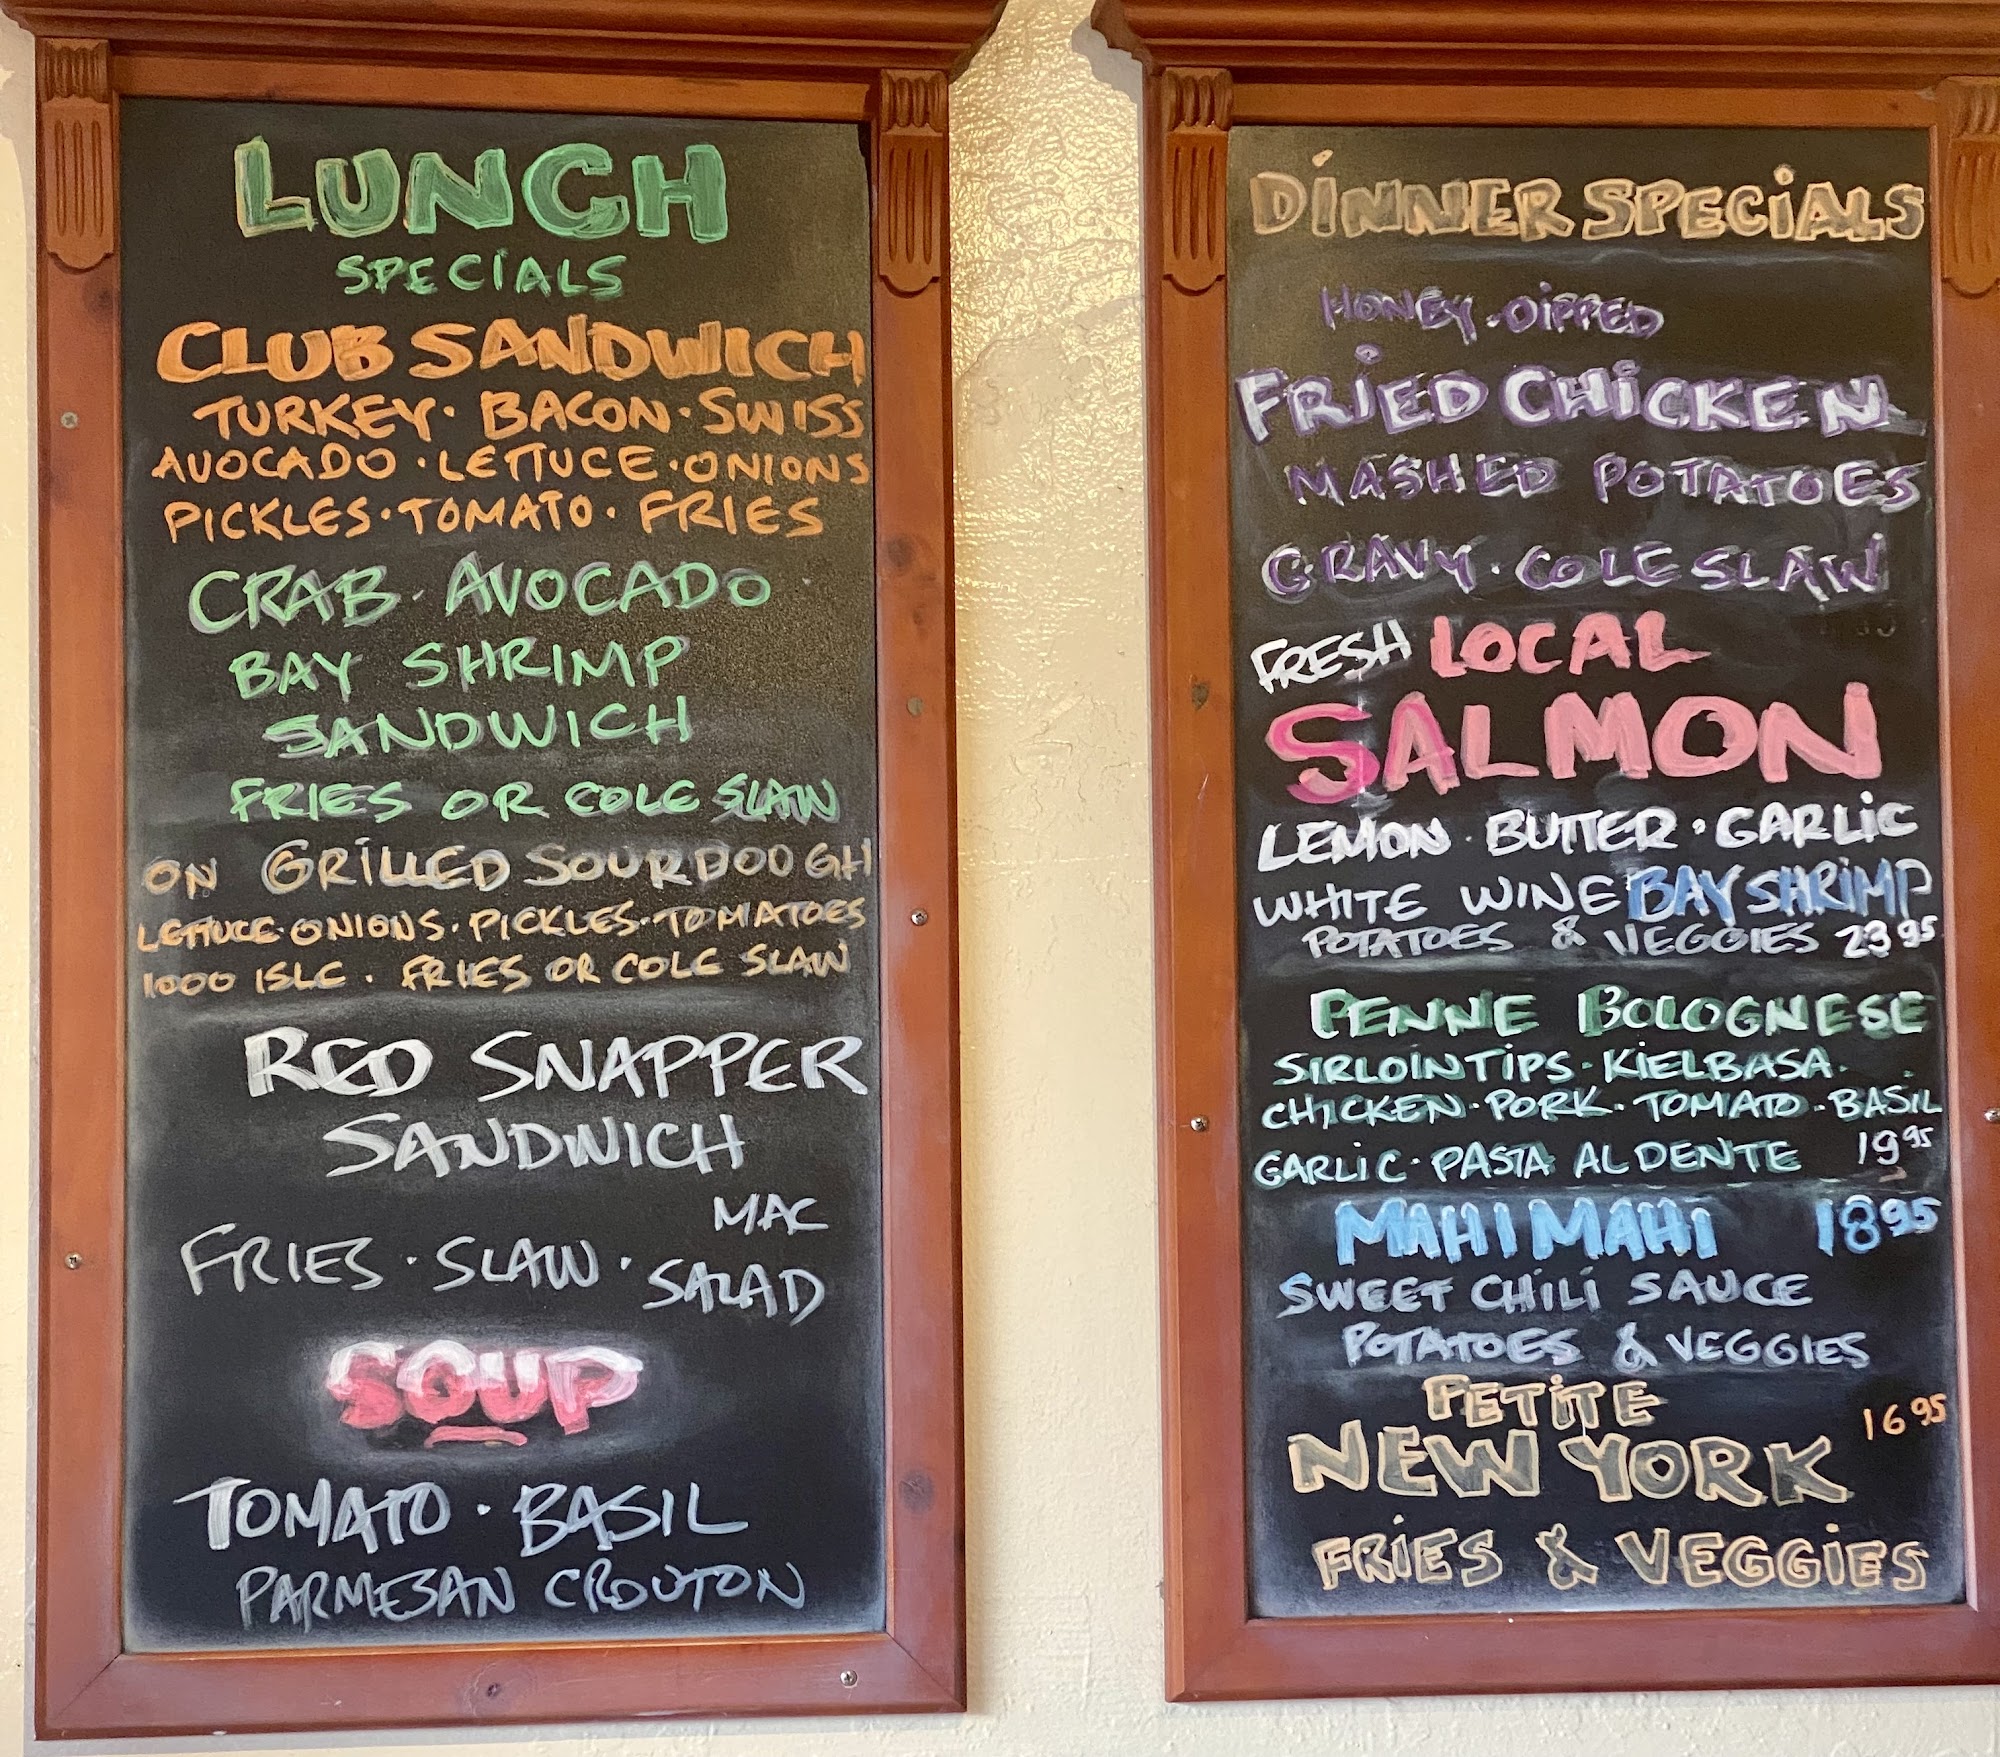 LUNCH
SPECIALS
CLUB SANDWICH
TURKEY · BACON · SWISS
AVOCADO · LETTUCE · ONIONS
PICKLES · TOMATO · FRIES
CRAB · AVOCADO
BAY SHRIMP
SANDWICH
FRIES OR COLE SLAW
ON GRILLED SOURDOUGH
LETTUCE · ONIONS · PICKLES · TOMATOES
1000 ISLE · FRIES OR COLE SLAW
RED SNAPPER
SANDWICH
FRIES · SLAW · MAC SALAD
SOUP
TOMATO · BASIL
PARMESAN CROUTON
DINNER SPECIALS
HONEY · DIPPED
FRIED CHICKEN
MASHED POTATOES
GRAVY · COLE SLAW
FRESH LOCAL
SALMON
LEMON · BUTTER · GARLIC
WHITE WINE BAY SHRIMP
POTATOES & VEGGIES 23 95
PENNE BOLOGNESE
SIRLOIN TIPS · KIELBASA ·
CHICKEN · PORK · TOMATO · BASIL
GARLIC · PASTA AL DENTE 19 95
MAHI MAHI 18 95
SWEET CHILI SAUCE
POTATOES & VEGGIES
PETITE
NEW YORK 16 95
FRIES & VEGGIES